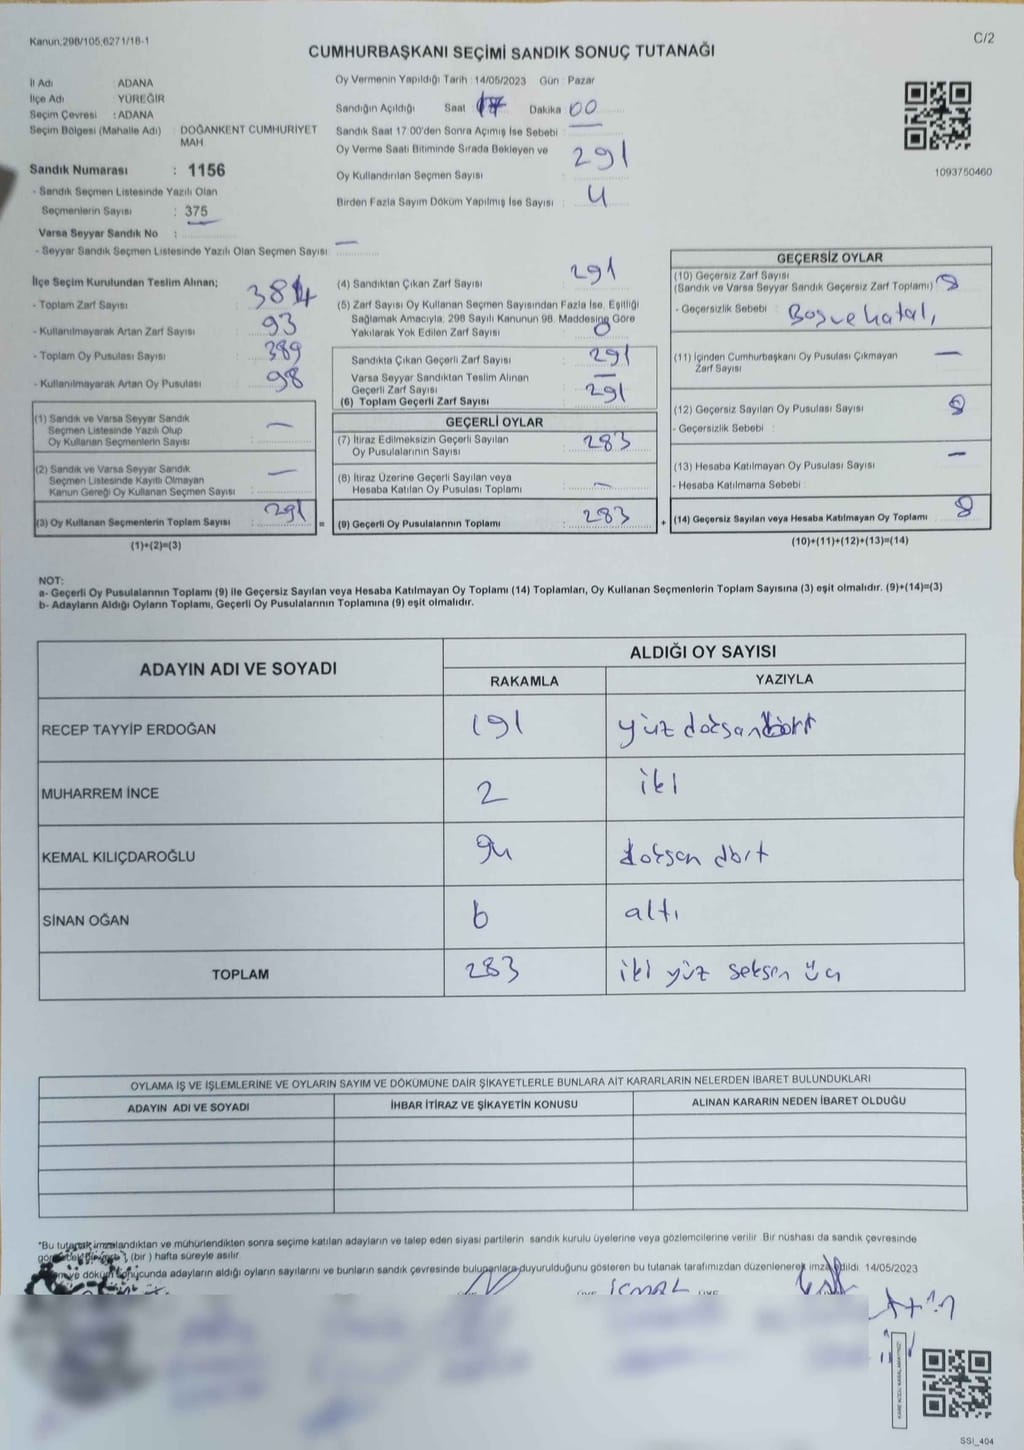 Kanun;298/105,6271/18-1
C/2
CUMHURBAŞKANI SEÇİMİ SANDIK SONUÇ TUTANAĞI
İl Adı : ADANA
İlçe Adı : YÜREĞİR
Seçim Çevresi : ADANA
Seçim Bölgesi (Mahalle Adı) : DOĞANKENT CUMHURİYET
MAH.
Sandık Numarası : 1156
- Sandık Seçmen Listesinde Yazılı Olan
Seçmenlerin Sayısı : 375
Varsa Seyyar Sandık No :
- Seyyar Sandık Seçmen Listesinde Yazılı Olan Seçmen Sayısı : —
Oy Vermenin Yapıldığı Tarih : 14/05/2023 Gün : Pazar
Sandığın Açıldığı Saat : 17 Dakika : 00
Sandık Saat 17:00'den Sonra Açılmış İse Sebebi : —
Oy Verme Saati Bitiminde Sırada Bekleyen ve
Oy Kullandırılan Seçmen Sayısı : 291
Birden Fazla Sayım Döküm Yapılmış İse Sayısı : 4
1093750460
İlçe Seçim Kurulundan Teslim Alınan;
- Toplam Zarf Sayısı : 384
- Kullanılmayarak Artan Zarf Sayısı : 93
- Toplam Oy Pusulası Sayısı : 389
- Kullanılmayarak Artan Oy Pusulası : 98
(1) Sandık ve Varsa Seyyar Sandık
Seçmen Listesinde Yazılı Olup
Oy Kullanan Seçmenlerin Sayısı : —
(2) Sandık ve Varsa Seyyar Sandık
Seçmen Listesinde Kayıtlı Olmayan
Kanun Gereği Oy Kullanan Seçmen Sayısı : —
(3) Oy Kullanan Seçmenlerin Toplam Sayısı : 291
(1)+(2)=(3)
(4) Sandıktan Çıkan Zarf Sayısı : 291
(5) Zarf Sayısı Oy Kullanan Seçmen Sayısından Fazla İse, Eşitliği
Sağlamak Amacıyla, 298 Sayılı Kanunun 98. Maddesine Göre
Yakılarak Yok Edilen Zarf Sayısı : 0
Sandıkta Çıkan Geçerli Zarf Sayısı : 291
Varsa Seyyar Sandıktan Teslim Alınan
Geçerli Zarf Sayısı : —
(6) Toplam Geçerli Zarf Sayısı : 291
GEÇERLİ OYLAR
(7) İtiraz Edilmeksizin Geçerli Sayılan
Oy Pusulalarının Sayısı : 283
(8) İtiraz Üzerine Geçerli Sayılan veya
Hesaba Katılan Oy Pusulası Toplamı : —
= (9) Geçerli Oy Pusulalarının Toplamı : 283
GEÇERSİZ OYLAR
(10) Geçersiz Zarf Sayısı
(Sandık ve Varsa Seyyar Sandık Geçersiz Zarf Toplamı) : 8
- Geçersizlik Sebebi : Boş ve hatalı
(11) İçinden Cumhurbaşkanı Oy Pusulası Çıkmayan
Zarf Sayısı : —
(12) Geçersiz Sayılan Oy Pusulası Sayısı : 8
- Geçersizlik Sebebi :
(13) Hesaba Katılmayan Oy Pusulası Sayısı : —
- Hesaba Katılmama Sebebi :
+ (14) Geçersiz Sayılan veya Hesaba Katılmayan Oy Toplamı : 8
(10)+(11)+(12)+(13)=(14)
NOT:
a- Geçerli Oy Pusulalarının Toplamı (9) ile Geçersiz Sayılan veya Hesaba Katılmayan Oy Toplamı (14) Toplamları, Oy Kullanan Seçmenlerin Toplam Sayısına (3) eşit olmalıdır. (9)+(14)=(3)
b- Adayların Aldığı Oyların Toplamı, Geçerli Oy Pusulalarının Toplamına (9) eşit olmalıdır.
ADAYIN ADI VE SOYADI
ALDIĞI OY SAYISI
RAKAMLA YAZIYLA
RECEP TAYYİP ERDOĞAN 191 yüz doksan
MUHARREM İNCE 2 iki
KEMAL KILIÇDAROĞLU 94 doksan dört
SİNAN OĞAN 6 altı
TOPLAM 283 iki yüz seksen üç
OYLAMA İŞ VE İŞLEMLERİNE VE OYLARIN SAYIM VE DÖKÜMÜNE DAİR ŞİKAYETLERLE BUNLARA AİT KARARLARIN NELERDEN İBARET BULUNDUKLARI
ADAYIN ADI VE SOYADI İHBAR İTİRAZ VE ŞİKAYETİN KONUSU ALINAN KARARIN NEDEN İBARET OLDUĞU
*Bu tutanak imzalandıktan ve mühürlendikten sonra seçime katılan adayların ve talep eden siyasi partilerin sandık kurulu üyelerine veya gözlemcilerine verilir. Bir nüshası da sandık çevresinde
(bir) hafta süreyle asılır.
döküm sonucunda adayların aldığı oyların sayılarını ve bunların sandık çevresinde bulunanlara duyurulduğunu gösteren bu tutanak tarafımızdan düzenlenerek imzalandı. 14/05/2023
SSI_404